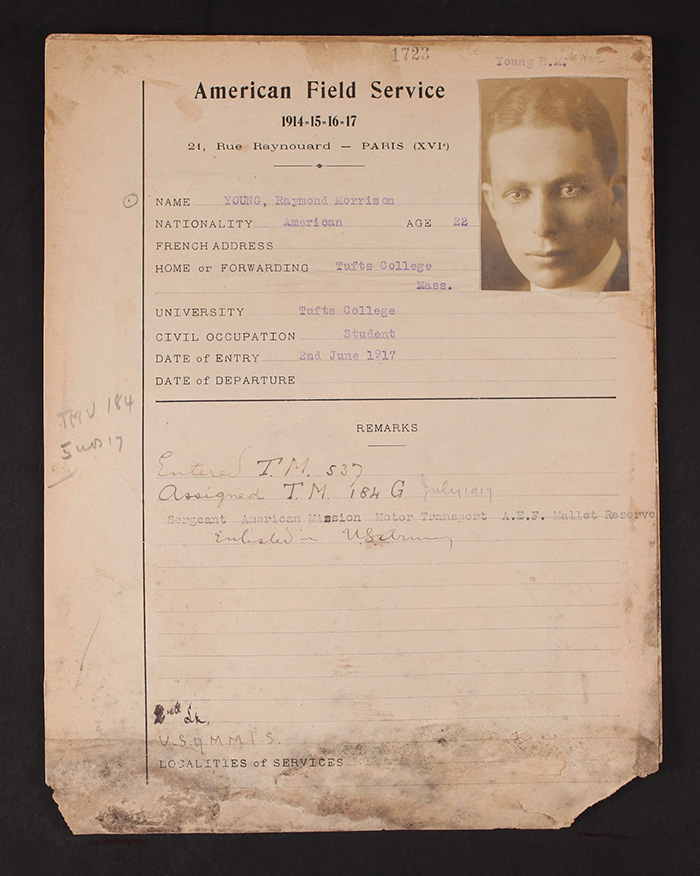 1723
Young R.M.
American Field Service
1914=15=16=17
21, Rue Raynouard — PARIS (XVIe)
NAME YOUNG, Raymond Morrison
NATIONALITY American AGE 22
FRENCH ADDRESS
HOME or FORWARDING Tufts College
Mass.
UNIVERSITY Tufts College
CIVIL OCCUPATION Student
DATE of ENTRY 2nd June 1917
DATE of DEPARTURE
REMARKS
TMU 184
5 17
Entered T.M. 537
Assigned T.M. 184 G July 1917
Sergeant American Mission Motor Transport A.E.F. Mallet Reserve
Enlisted in U.S. Army
2nd Lt.
U.S.Q.M.M.T.S.
LOCALITIES of SERVICES